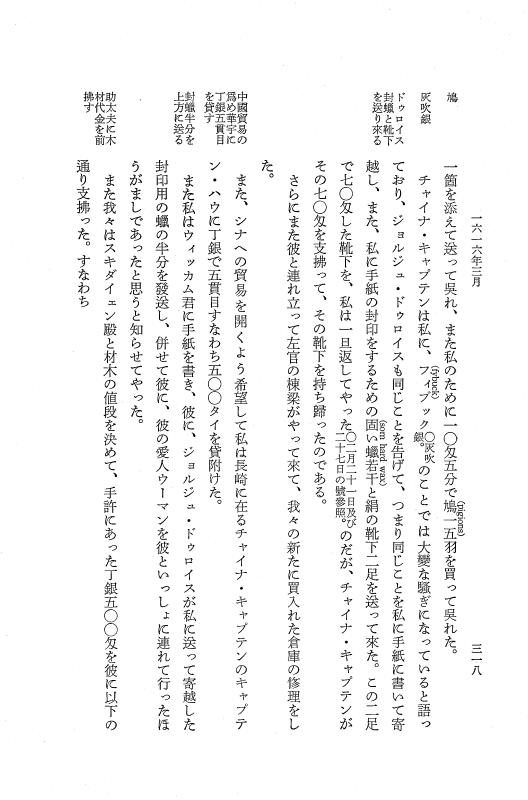 一六一六年三月
三一八
鳩
一箇を添えて送って吳れ、また私のために一〇匁五分で鳩一五羽を買って吳れた。
(tigions)
灰吹銀
チャイナ・キャプテンは私に、フィブック〇灰吹銀。のことでは大變な騷ぎになっていると語っ
(fybuck)
ドゥロイス
封蠟と靴下
を送り來る
ており、ジョルジュ・ドゥロイスも同じことを告げて、つまり同じことを私に手紙に書いて寄
越し、また、私に手紙の封印をするための固い蠟若干と絹の靴下二足を送って來た。この二足
(som hard wax)
で七〇匁した靴下を、私は一旦返してやった〇二月二十一日及び二十七日の號參照。のだが、チャイナ・キャプテンが
その七〇匁を支拂って、その靴下を持ち歸ったのである。
さらにまた彼と連れ立って左官の棟梁がやって來て、我々の新たに買入れた倉庫の修理をし
た。
中國貿易の
爲め華宇に
丁銀五貫目
を貸す
また、シナへの貿易を開くよう希望して私は長崎に在るチャイナ・キャプテンのキャプテ
ン・ハウに丁銀で五貫目すなわち五〇〇タイを貸附けた。
封蠟半分を
上方に送る
また私はウィッカム君に手紙を書き、彼に、ジョルジュ・ドゥロイスが私に送って寄越した
封印用の蠟の半分を發送し、併せて彼に、彼の愛人ウーマンを彼といっしょに連れて行ったほ
うがましであったと思うと知らせてやった。
助太夫に木
材代金を前
拂す
また我々はスキダイェン殿と材木の値段を決めて、手許にあった丁銀五〇〇匁を彼に以下の
通り支拂った。すなわち